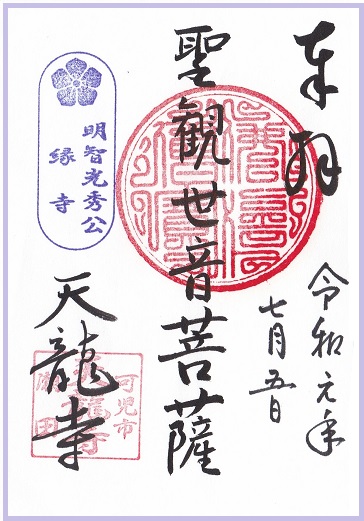 奉拝
令和元年
七月五日
聖観世音菩薩
明智光秀公
縁寺
天龍寺
可児市